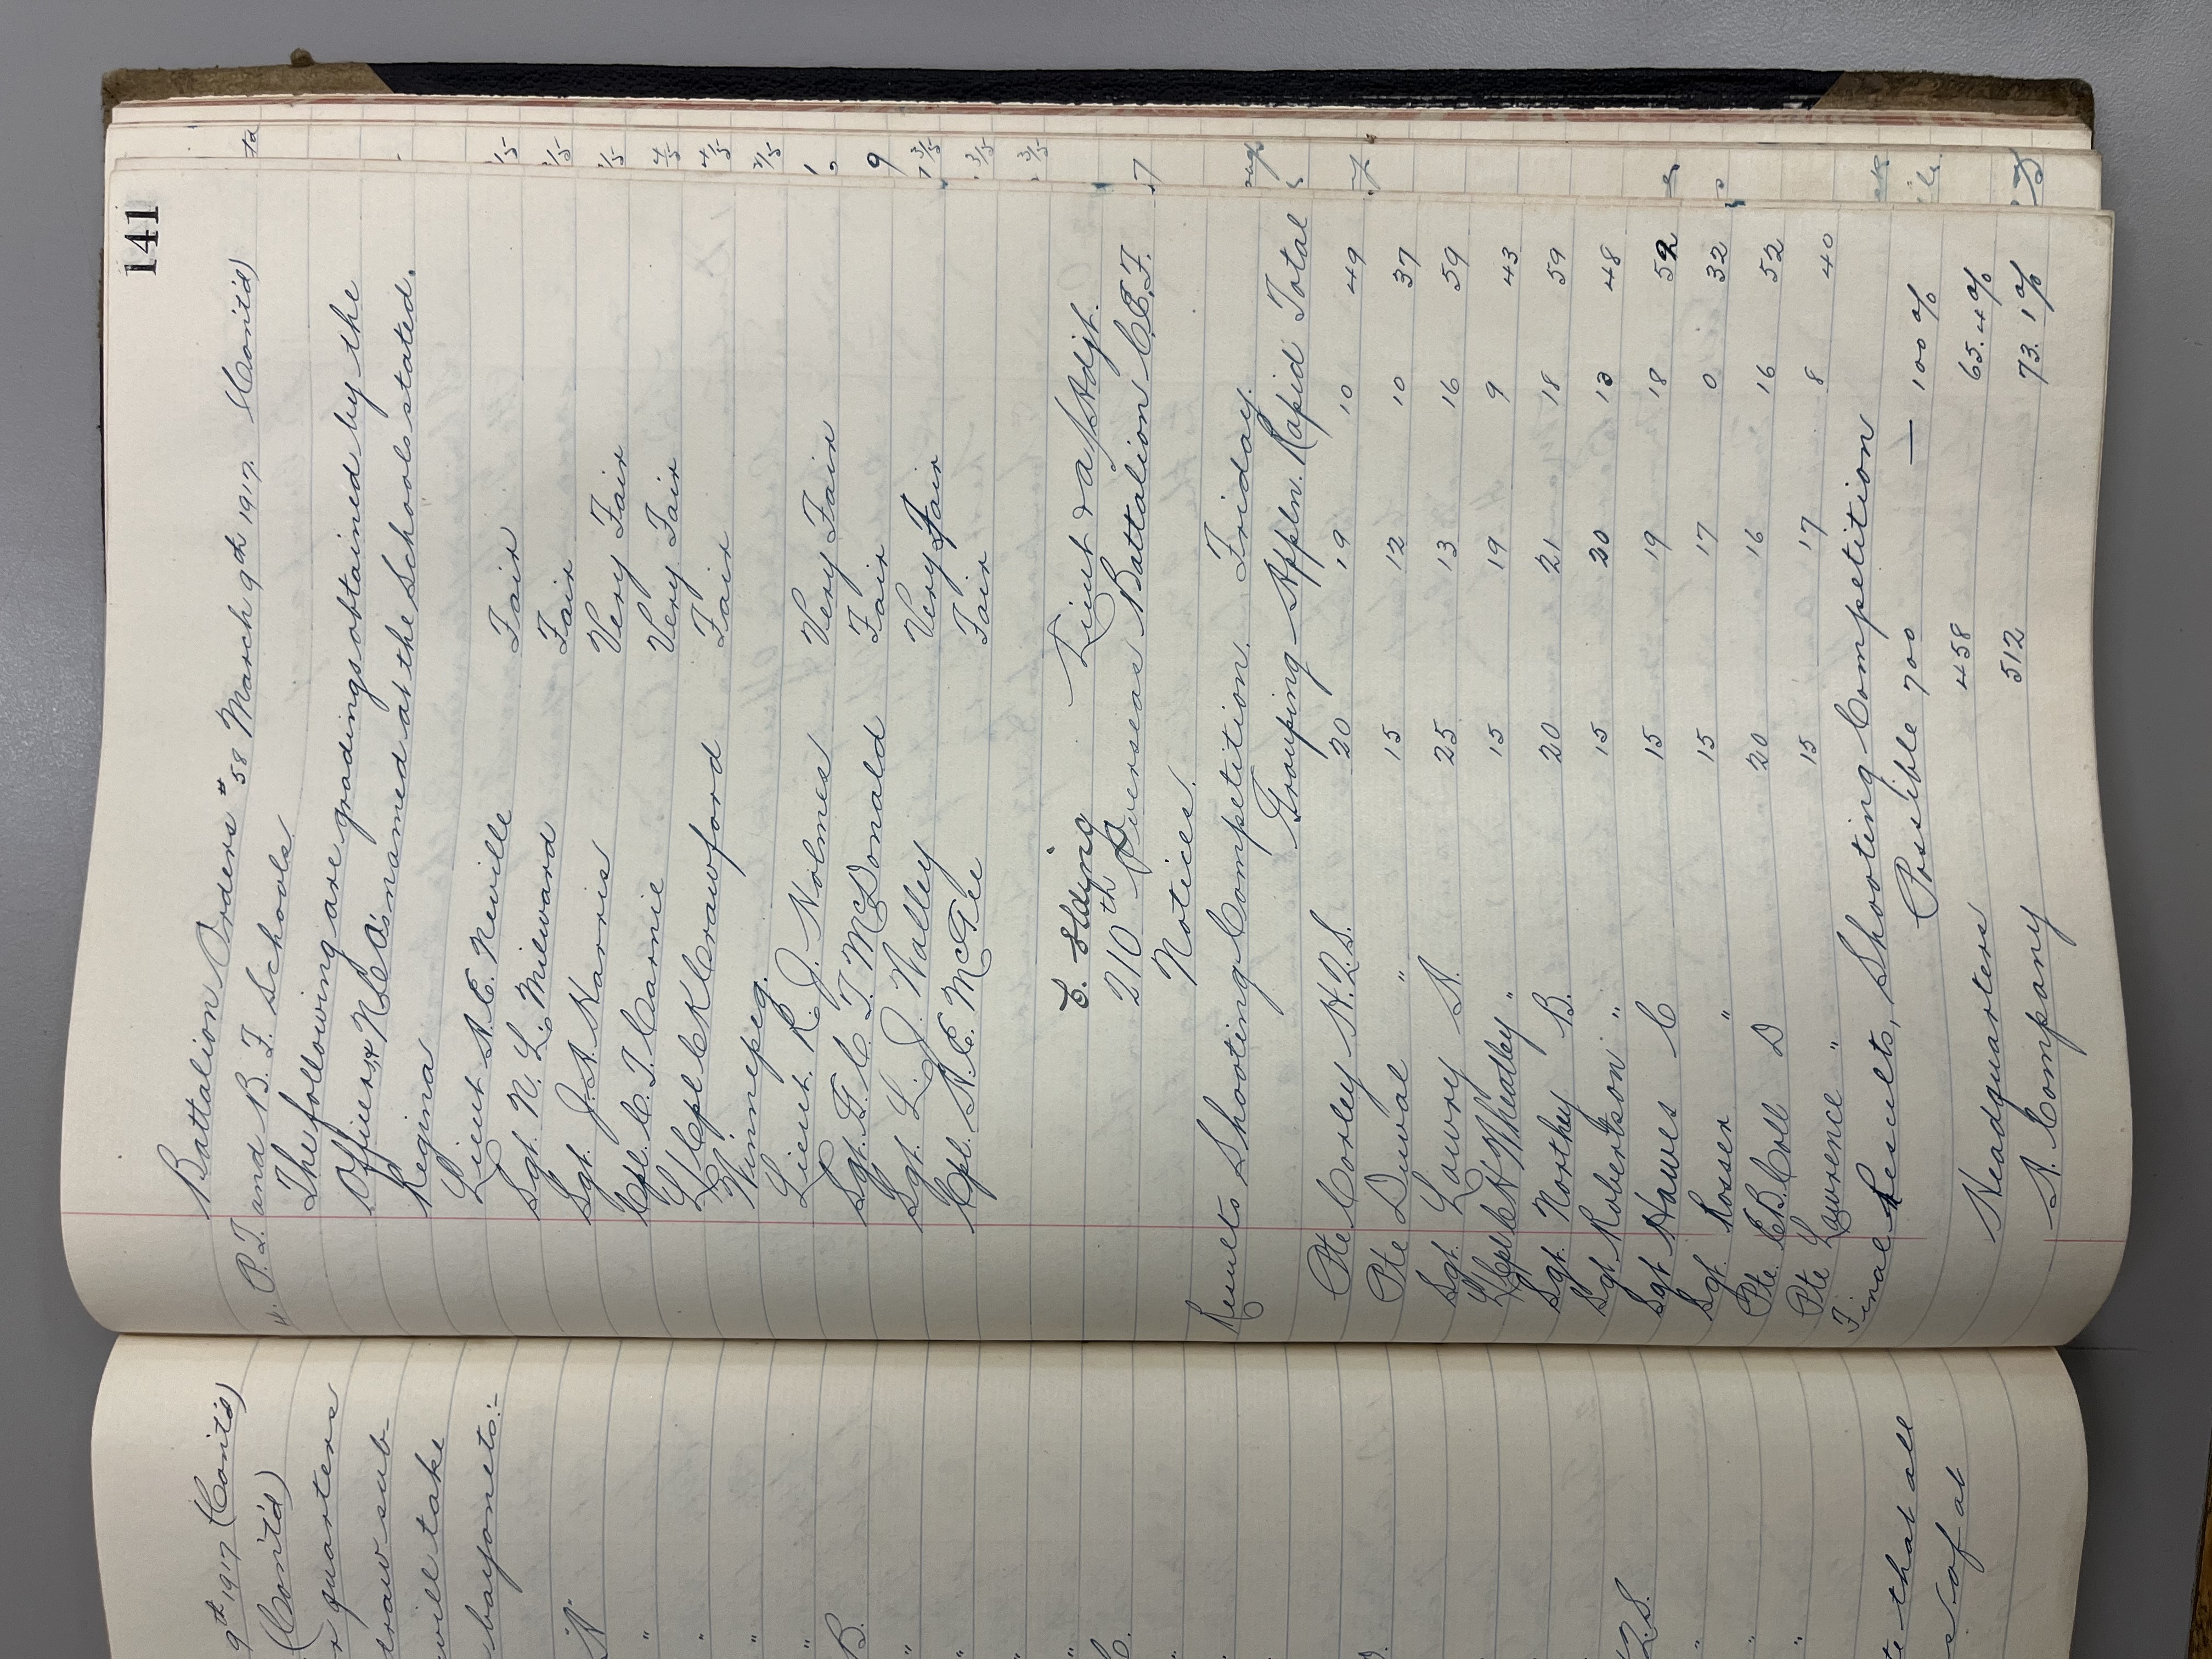 141
Battalion Orders #58 March 9th 1917 (Cont'd)
4. P.T. and B.F. Schools
The following are gradings obtained by the
Officers & N.C.O's named at the Schools stated.
Regina
Lieut A.E. Neville Fair
Sgt. N. L. Milward Fair
Sgt. J.A. Harris Very Fair
Cpl. C.T. Carnie Very Fair
L/Cpl C K Crawford Fair
Winnipeg.
Lieut. R. J. Holmes Very Fair
Sgt. G. C. T. McDonald Fair
Sgt. L. J. Walley Very Fair
Cpl. A.E. McGee Fair
Lieut & a/Adjt.
210th Overseas Battalion C.E.F.
Notices.
Results Shooting Competition. Friday.
Grouping Appln. Rapid Total
Pte Corley H.Q.S. 20 19 10 49
Pte Duval " 15 12 10 37
Sgt. Lowry A. 25 13 16 59
L/Cpl C H Wheatley " 15 19 9 43
Sgt. Northey B. 20 21 18 59
Sgt Robertson " 15 20 13 48
Sgt Hawes C 15 19 18 52
Sgt. Rosser " 15 17 0 32
Pte. E.B. Coll D 20 16 16 52
Pte Lawrence " 15 17 8 40
Final Results, Shooting Competition
Possible 700 — 100 %
Headquarters 458 65.4 %
A. Company 512 73.1 %
9th 1917 (Cont'd)
(Cont'd)
quarters
draw sub-
will take
bayonets:-
A.
"
"
"
"
B.
"
"
"
"
C.
"
"
"
that all
of at